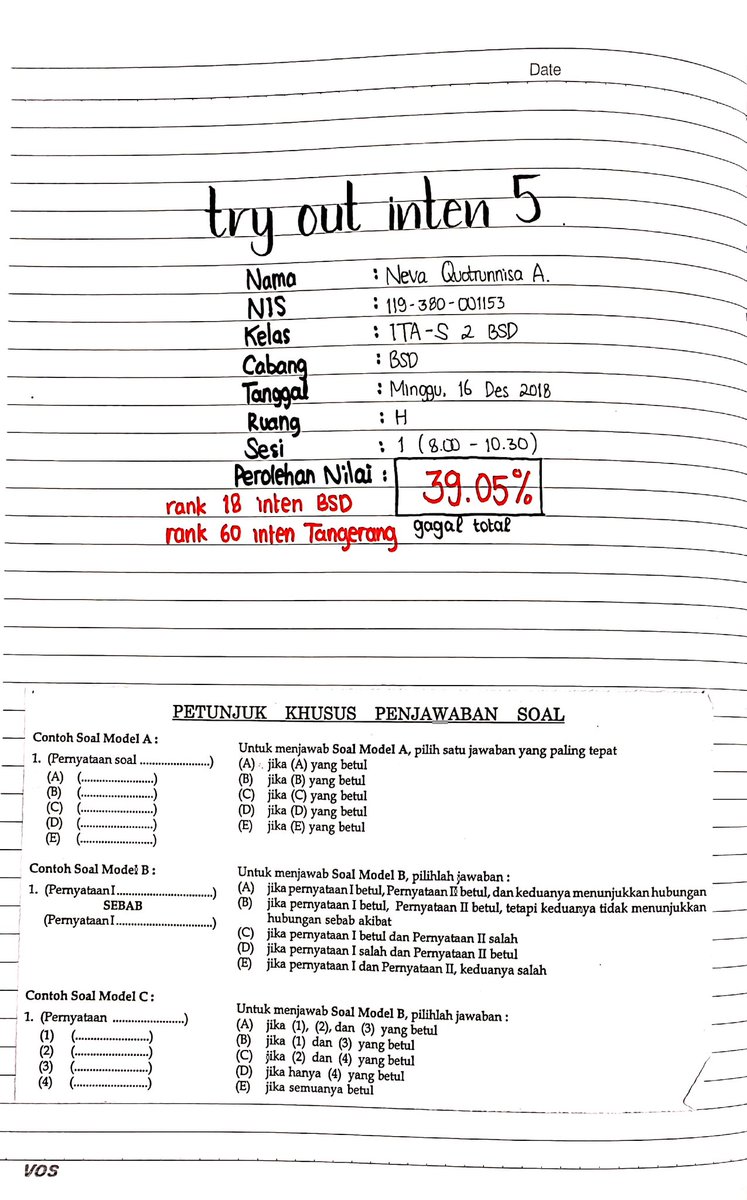 Date
try out inten 5
Nama : Neva Qudrunnisa A.
NIS : 119-380-001153
Kelas : ITA-S 2 BSD
Cabang : BSD
Tanggal : Minggu, 16 Des 2018
Ruang : H
Sesi : 1 (8.00 - 10.30)
Perolehan Nilai : 39.05%
rank 18 inten BSD
rank 60 inten Tangerang gagal total
PETUNJUK KHUSUS PENJAWABAN SOAL
Contoh Soal Model A :
1. (Pernyataan soal .......................)
(A) (........................)
(B) (........................)
(C) (........................)
(D) (........................)
(E) (........................)
Untuk menjawab Soal Model A, pilih satu jawaban yang paling tepat
(A) jika (A) yang betul
(B) jika (B) yang betul
(C) jika (C) yang betul
(D) jika (D) yang betul
(E) jika (E) yang betul
Contoh Soal Model B :
1. (Pernyataan I ................................)
SEBAB
(Pernyataan I ................................)
Untuk menjawab Soal Model B, pilihlah jawaban :
(A) jika pernyataan I betul, Pernyataan II betul, dan keduanya menunjukkan hubungan
(B) jika pernyataan I betul, Pernyataan II betul, tetapi keduanya tidak menunjukkan
hubungan sebab akibat
(C) jika pernyataan I betul dan Pernyataan II salah
(D) jika pernyataan I salah dan Pernyataan II betul
(E) jika pernyataan I dan Pernyataan II, keduanya salah
Contoh Soal Model C :
1. (Pernyataan ........................)
(1) (........................)
(2) (........................)
(3) (........................)
(4) (........................)
Untuk menjawab Soal Model B, pilihlah jawaban :
(A) jika (1), (2), dan (3) yang betul
(B) jika (1) dan (3) yang betul
(C) jika (2) dan (4) yang betul
(D) jika hanya (4) yang betul
(E) jika semuanya betul
VOS